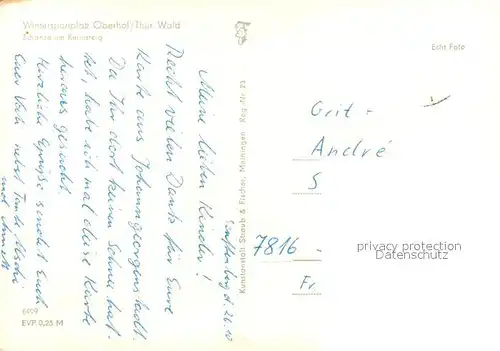 Wintersportplatz Oberhof/Thür. Wald
Schanze am Rennsteig
Echt Foto
Meine lieben Kinder!
Recht vielen Dank für Eure
Karte aus Johanngeorgenstadt.
Da Ihr dort keinen Schnee hat-
tet, habe ich mal diese Karte
heraus gesucht.
Herzliche Grüße sendet Euch
Euer Vati nebst Tante
und
Kunstanstalt Straub & Fischer, Meiningen Reg.-Nr. 23
Grit +
André
S
7816
Fr.
privacy protection
Datenschutz
6409
EVP 0,25 M